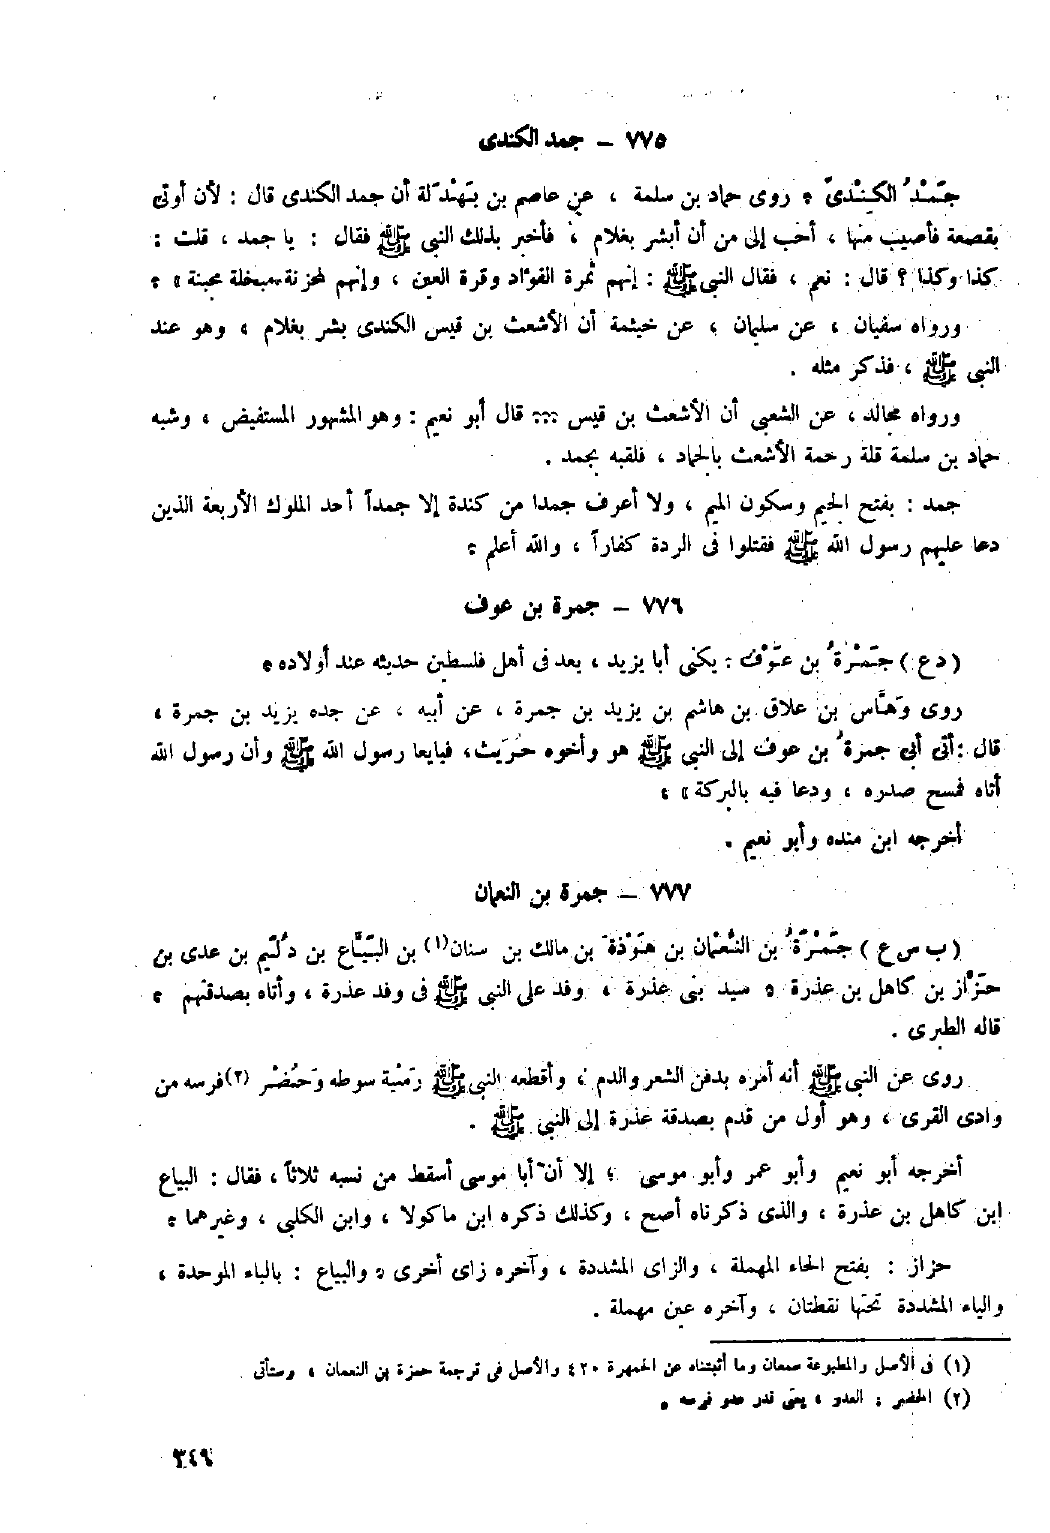 ٧٧٥ – جمد الكندى
جَمْدُ الكِنْدىّ ، روى حماد بن سلمة ، عن عاصم بن بَهْدَلة أن جمد الكندى قال : لأن أوتى
بقصعة فأصيب منها ، أحب إلى من أن أبشر بغلام ، فأخبر بذلك النبى ﷺ فقال : يا جمد ، قلت :
كذا وكذا ؟ قال : نعم ، فقال النبى ﷺ : إنهم ثمرة الفؤاد وقرة العين ، وإنهم لمحزنة مبخلة مجبنة » .
ورواه سفيان ، عن سليمان ، عن خيثمة أن الأشعث بن قيس الكندى بشر بغلام ، وهو عند
النبى ﷺ ، فذكر مثله .
ورواه مجالد ، عن الشعبى أن الأشعث بن قيس ... قال أبو نعيم : وهو المشهور المستفيض ، وشبه
حماد بن سلمة قلة رحمة الأشعث بالجماد ، فلقبه بجمد .
جمد : بفتح الجيم وسكون الميم ، ولا أعرف جمدا من كندة إلا جمداً أحد الملوك الأربعة الذين
دعا عليهم رسول الله ﷺ فقتلوا فى الردة كفاراً ، والله أعلم .
٧٧٦ – جمرة بن عوف
( دع ) جَمْرَةُ بن عَوْف . يكنى أبا يزيد ، يعد فى أهل فلسطين حديثه عند أولاده .
روى وَهَّاس بن علاق بن هاشم بن يزيد بن جمرة ، عن أبيه ، عن جده يزيد بن جمرة ،
قال : أتى أبى جمرةُ بن عوف إلى النبى ﷺ هو وأخوه حُرَيث ، فبايعا رسول الله ﷺ وأن رسول الله
أتاه فمسح صدره ، ودعا فيه بالبركة » .
أخرجه ابن منده وأبو نعيم .
٧٧٧ – جمرة بن النعمان
( ب س ع ) جَمْرَةُ بن النُّعْمَان بن هَوْذَة بن مالك بن سنان(١) بن البَيَّاع بن دُلَيم بن عدى بن
حَزَّاز بن كاهل بن عذرة ، سيد بنى عذرة ، وفد على النبى ﷺ فى وفد عذرة ، وأتاه بصدقتهم ،
قاله الطبرى .
روى عن النبى ﷺ أنه أمره بدفن الشعر والدم ، وأقطعه النبى ﷺ رَمْيَة سوطه وَحُضْر (٢) فرسه من
وادى القرى ، وهو أول من قدم بصدقة عذرة إلى النبى ﷺ .
أخرجه أبو نعيم وأبو عمر وأبو موسى ، إلا أن أبا موسى أسقط من نسبه ثلاثاً ، فقال : البياع
ابن كاهل بن عذرة ، والذى ذكرناه أصح ، وكذلك ذكره ابن ماكولا ، وابن الكلبى ، وغيرهما .
حزاز : بفتح الحاء المهملة ، والزاى المشددة ، وآخره زاى أخرى ، والبياع : بالباء الموحدة ،
والياء المشددة تحتها نقطتان ، وآخره عين مهملة .
(١) فى الأصل والمطبوعة سمعان وما أثبتناه عن الجمهرة ٤٢٠ والأصل فى ترجمة حمزة بن النعمان ، وستأتى .
(٢) الحضر : العدو ، يعنى قدر عدو فرسه .
٣٤٩